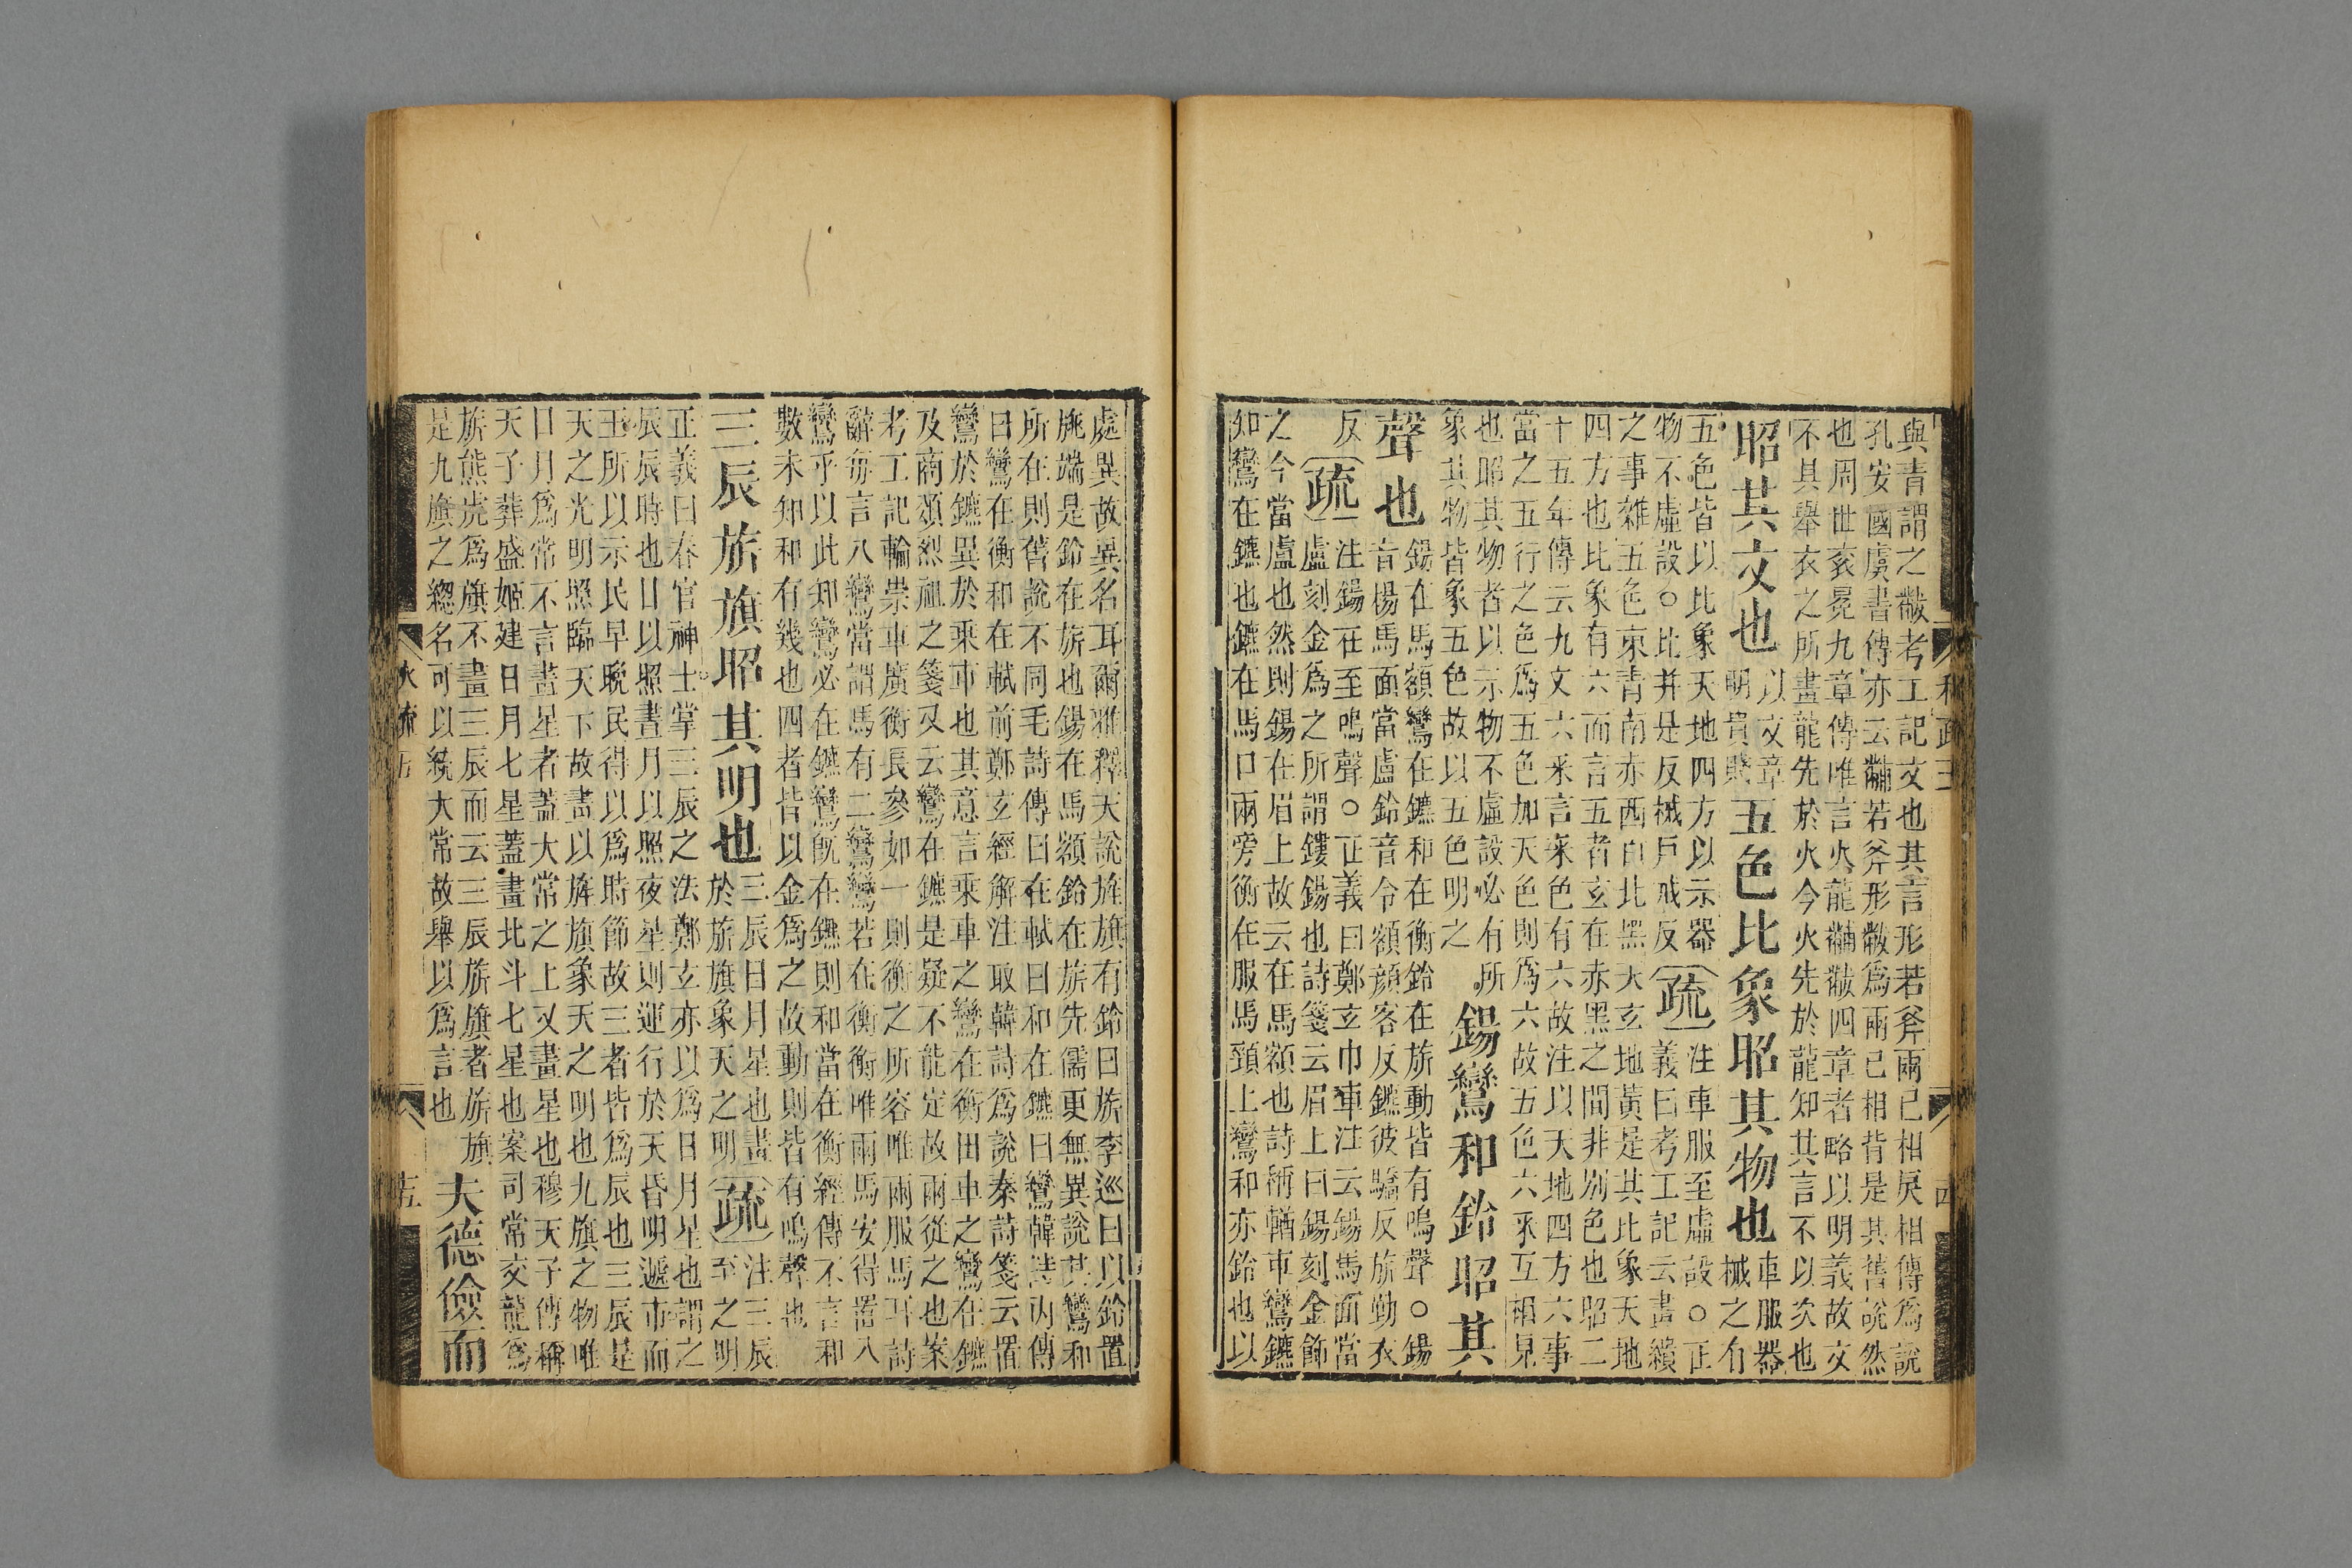 與青謂之黻考工記文也其言形若斧兩已相戾相傳爲說
孔安國虞書傳亦云黼若斧形黻爲兩已相背是其舊說然
也周世衮冕九章傳唯言火龍黼黻四章者略以明義故文
不具舉衣之所畫龍先於火今火先於龍知其言不以次也
昭其文也以文章明貴賤五色比象昭其物也車服器械之有
五色皆以比象天地四方以示器
物不虛設○比并是反械戶戒反疏注車服至虛設○正
義曰考工記云畫繢
之事雜五色東青南赤西白北黑天玄地黃是其比象天地
四方也比象有六而言五者玄在赤黑之間非別色也昭二
十五年傳云九文六采言采色有六故注以天地四方六事
當之五行之色爲五色加天色則爲六故五色六采互相見
也昭其物者以示物不虛設必有所
象其物皆象五色故以五色明之鍚鸞和鈴昭其
聲也鍚在馬額鸞在鑣和在衡鈴在旂動皆有鳴聲○鍚
音楊馬面當盧鈴音令額顏客反鑣彼驕反旂勤衣
反疏注鍚在至鳴聲○正義曰鄭玄巾車注云鍚馬面當
盧刻金爲之所謂鏤鍚也詩箋云眉上曰鍚刻金飾
之今當盧也然則鍚在眉上故云在馬額也詩稱輶車鸞鑣
知鸞在鑣也鑣在馬口兩旁衡在服馬頸上鸞和亦鈴也以
處異故異名耳爾雅釋天說旌旗有鈴曰旂李巡曰以鈴置
旄端是鈴在旂也鍚在馬額鈴在旂先儒更無異說其鸞和
所在則舊說不同毛詩傳曰在軾曰和在鑣曰鸞韓詩內傳
曰鸞在衡和在軾前鄭玄經解注取韓詩爲說秦詩箋云置
鸞於鑣異於乘車也其意言乘車之鸞在衡田車之鸞在鑣
及商頌烈祖之箋又云鸞在鑣是疑不能定故兩從之也案
考工記輪崇車廣衡長參如一則衡之所容唯兩服馬耳詩
辭每言八鸞當謂馬有二鸞鸞若在衡衡唯兩馬安得置八
鸞乎以此知鸞必在鑣鸞既在鑣則和當在衡經傳不言和
數未知和有幾也四者皆以金爲之故動則皆有鳴聲也
三辰旂旗昭其明也三辰日月星也畫
於旂旗象天之明疏注三辰
至之明
正義曰春官神士掌三辰之法鄭玄亦以爲日月星也謂之
辰辰時也日以照晝月以照夜星則運行於天昏明遞帀而
王所以示民早晚民得以爲時節故三者皆爲辰也三辰是
天之光明照臨天下故畫以旌旗象天之明也九旗之物唯
日月爲常不言畫星者蓋大常之上又畫星也穆天子傳稱
天子葬盛姬建日月七星蓋畫北斗七星也案司常交龍爲
旂熊虎爲旗不畫三辰而云三辰旂旗者旂旗
是九旗之總名可以統大常故舉以爲言也夫德儉而